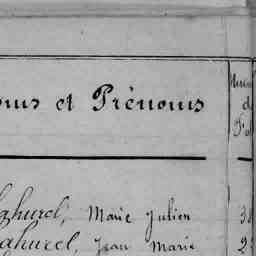 oms et Prénoms
ahurel, Marie Julien
ahurel, Jean Marie